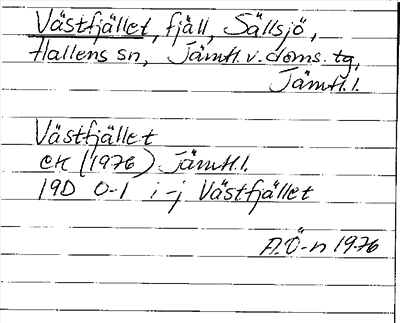 Västfjället, fjäll, Sällsjö,
Hallens sn, Jämtl. v. doms. tg,
Jämtl. l.
Västfjället
ek (1976) Jämtl. l.
19D 0-1 i-j Västfjället
A.Ö-n 1976